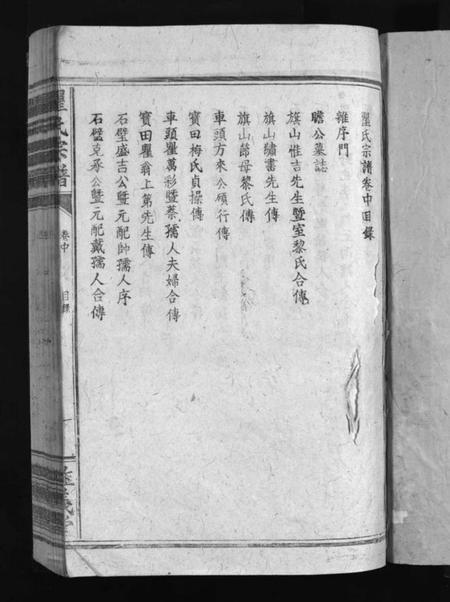 瞿氏宗譜卷中目錄
雜序門
瞻公墓誌
旗山惟吉先生暨室黎氏合傳
旗山嘯書先生傳
旗山節母黎氏傳
車頭方來公碩行傳
寶田梅氏貞操傳
車頭瞿萬彩暨蔡孺人夫婦合傳
寶田瞿翁上第先生傳
石壁盛吉公暨元配帥孺人序
石壁克承公暨元配戴孺人合傳
瞿氏宗譜
卷中
目錄
一